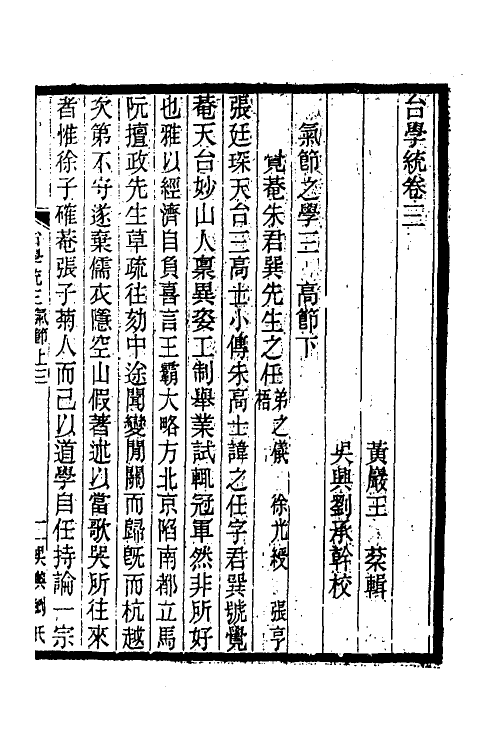 台學統卷三
黃巖王 棻輯
吳興劉承幹校
氣節之學三 高節下
覺菴朱君巽先生之任 弟之儀 徐光綬 張亨梧
張廷琛天台三高士小傳朱高士諱之任字君巽號覺
菴天台妙山人稟異姿工制舉業試輒冠軍然非所好
也雅以經濟自負喜言王霸大略方北京陷南都立馬
阮擅政先生草疏往劾中途聞變閒關而歸旣而杭越
次第不守遂棄儒衣隱空山假著述以當歌哭所往來
者惟徐子確菴張子菊人而已以道學自任持論一宗
台學統三氣節上三
一 吳興劉氏